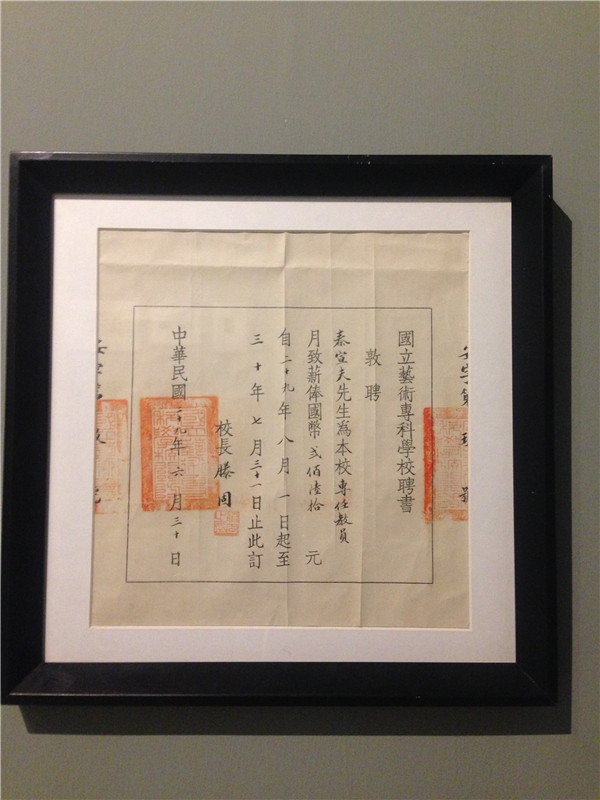 國立藝術專科學校聘書
敦聘
秦宣夫先生為本校專任教員
月致薪俸國幣貳佰陸拾元
自二十九年八月一日起至
三十年七月三十一日止此訂
校長滕固
中華民國二十九年六月三十日